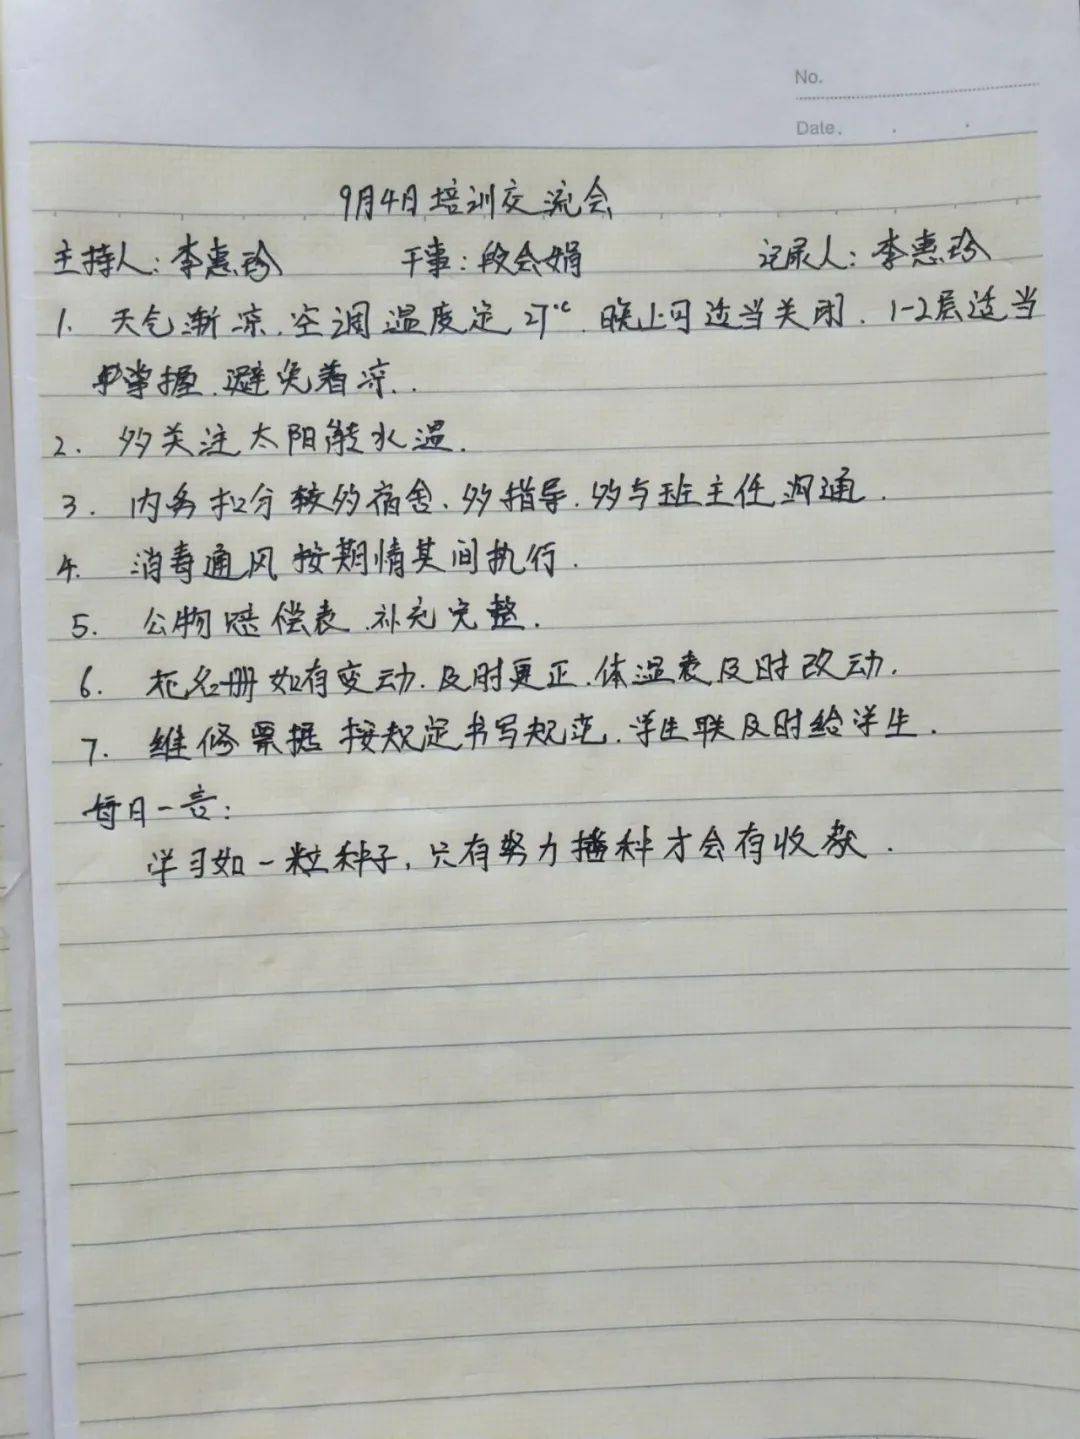 No.
Date.
9月4日培训交流会
主持人：李惠珍 干事：段会娟 记录人：李惠珍
1. 天气渐凉.空调温度定27℃.晚上可适当关闭.1-2层适当
掌握.避免着凉..
2. 多关注太阳能水温.
3. 内务扣分较多宿舍、多指导.多与班主任沟通.
4. 消毒通风按期情其间执行.
5. 公物赔偿表.补充完整.
6. 花名册如有变动.及时更正.体温表及时改动.
7. 维修票据按规定书写规范.学生联及时给学生.
每日一言：
学习如一粒种子,只有努力播种才会有收获.